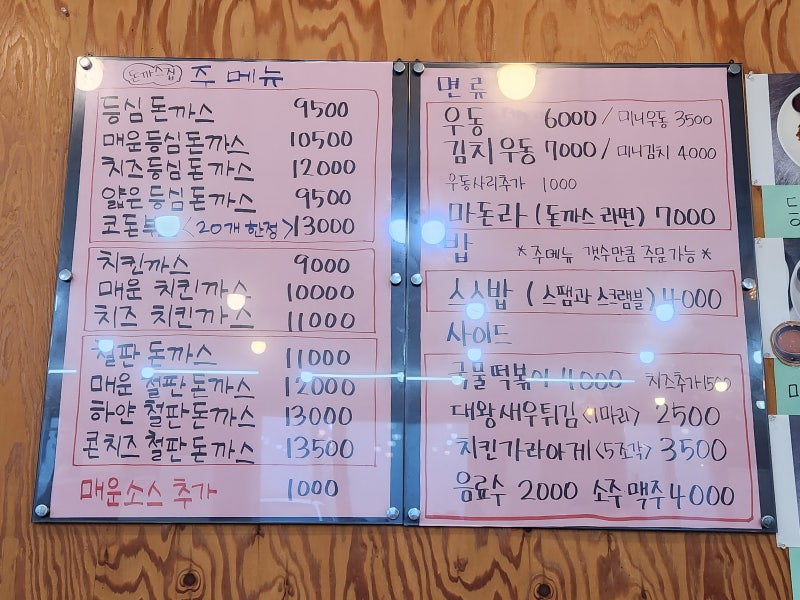 돈까스집 주 메뉴
등심 돈까스 9500
매운등심돈까스 10500
치즈등심돈까스 12000
얇은등심돈까스 9500
코돈부 <20개 한정> 13000
치킨까스 9000
매운 치킨까스 10000
치즈 치킨까스 11000
철판 돈까스 11000
매운 철판돈까스 12000
하얀 철판돈까스 13000
콘치즈 철판돈까스 13500
매운소스 추가 1000
면 류
우동 6000 / 미니우동 3500
김치우동 7000 / 미니김치 4000
우동사리추가 1000
마돈라 (돈까스라면) 7000
밥 *주메뉴 갯수만큼 주문가능*
스스밥 (스팸과 스크램블) 4000
사이드
국물떡볶이 4000 치즈추가 1500
대왕새우튀김 <1마리> 2500
치킨가라아게 <5조각> 3500
음료수 2000 소주 맥주 4000